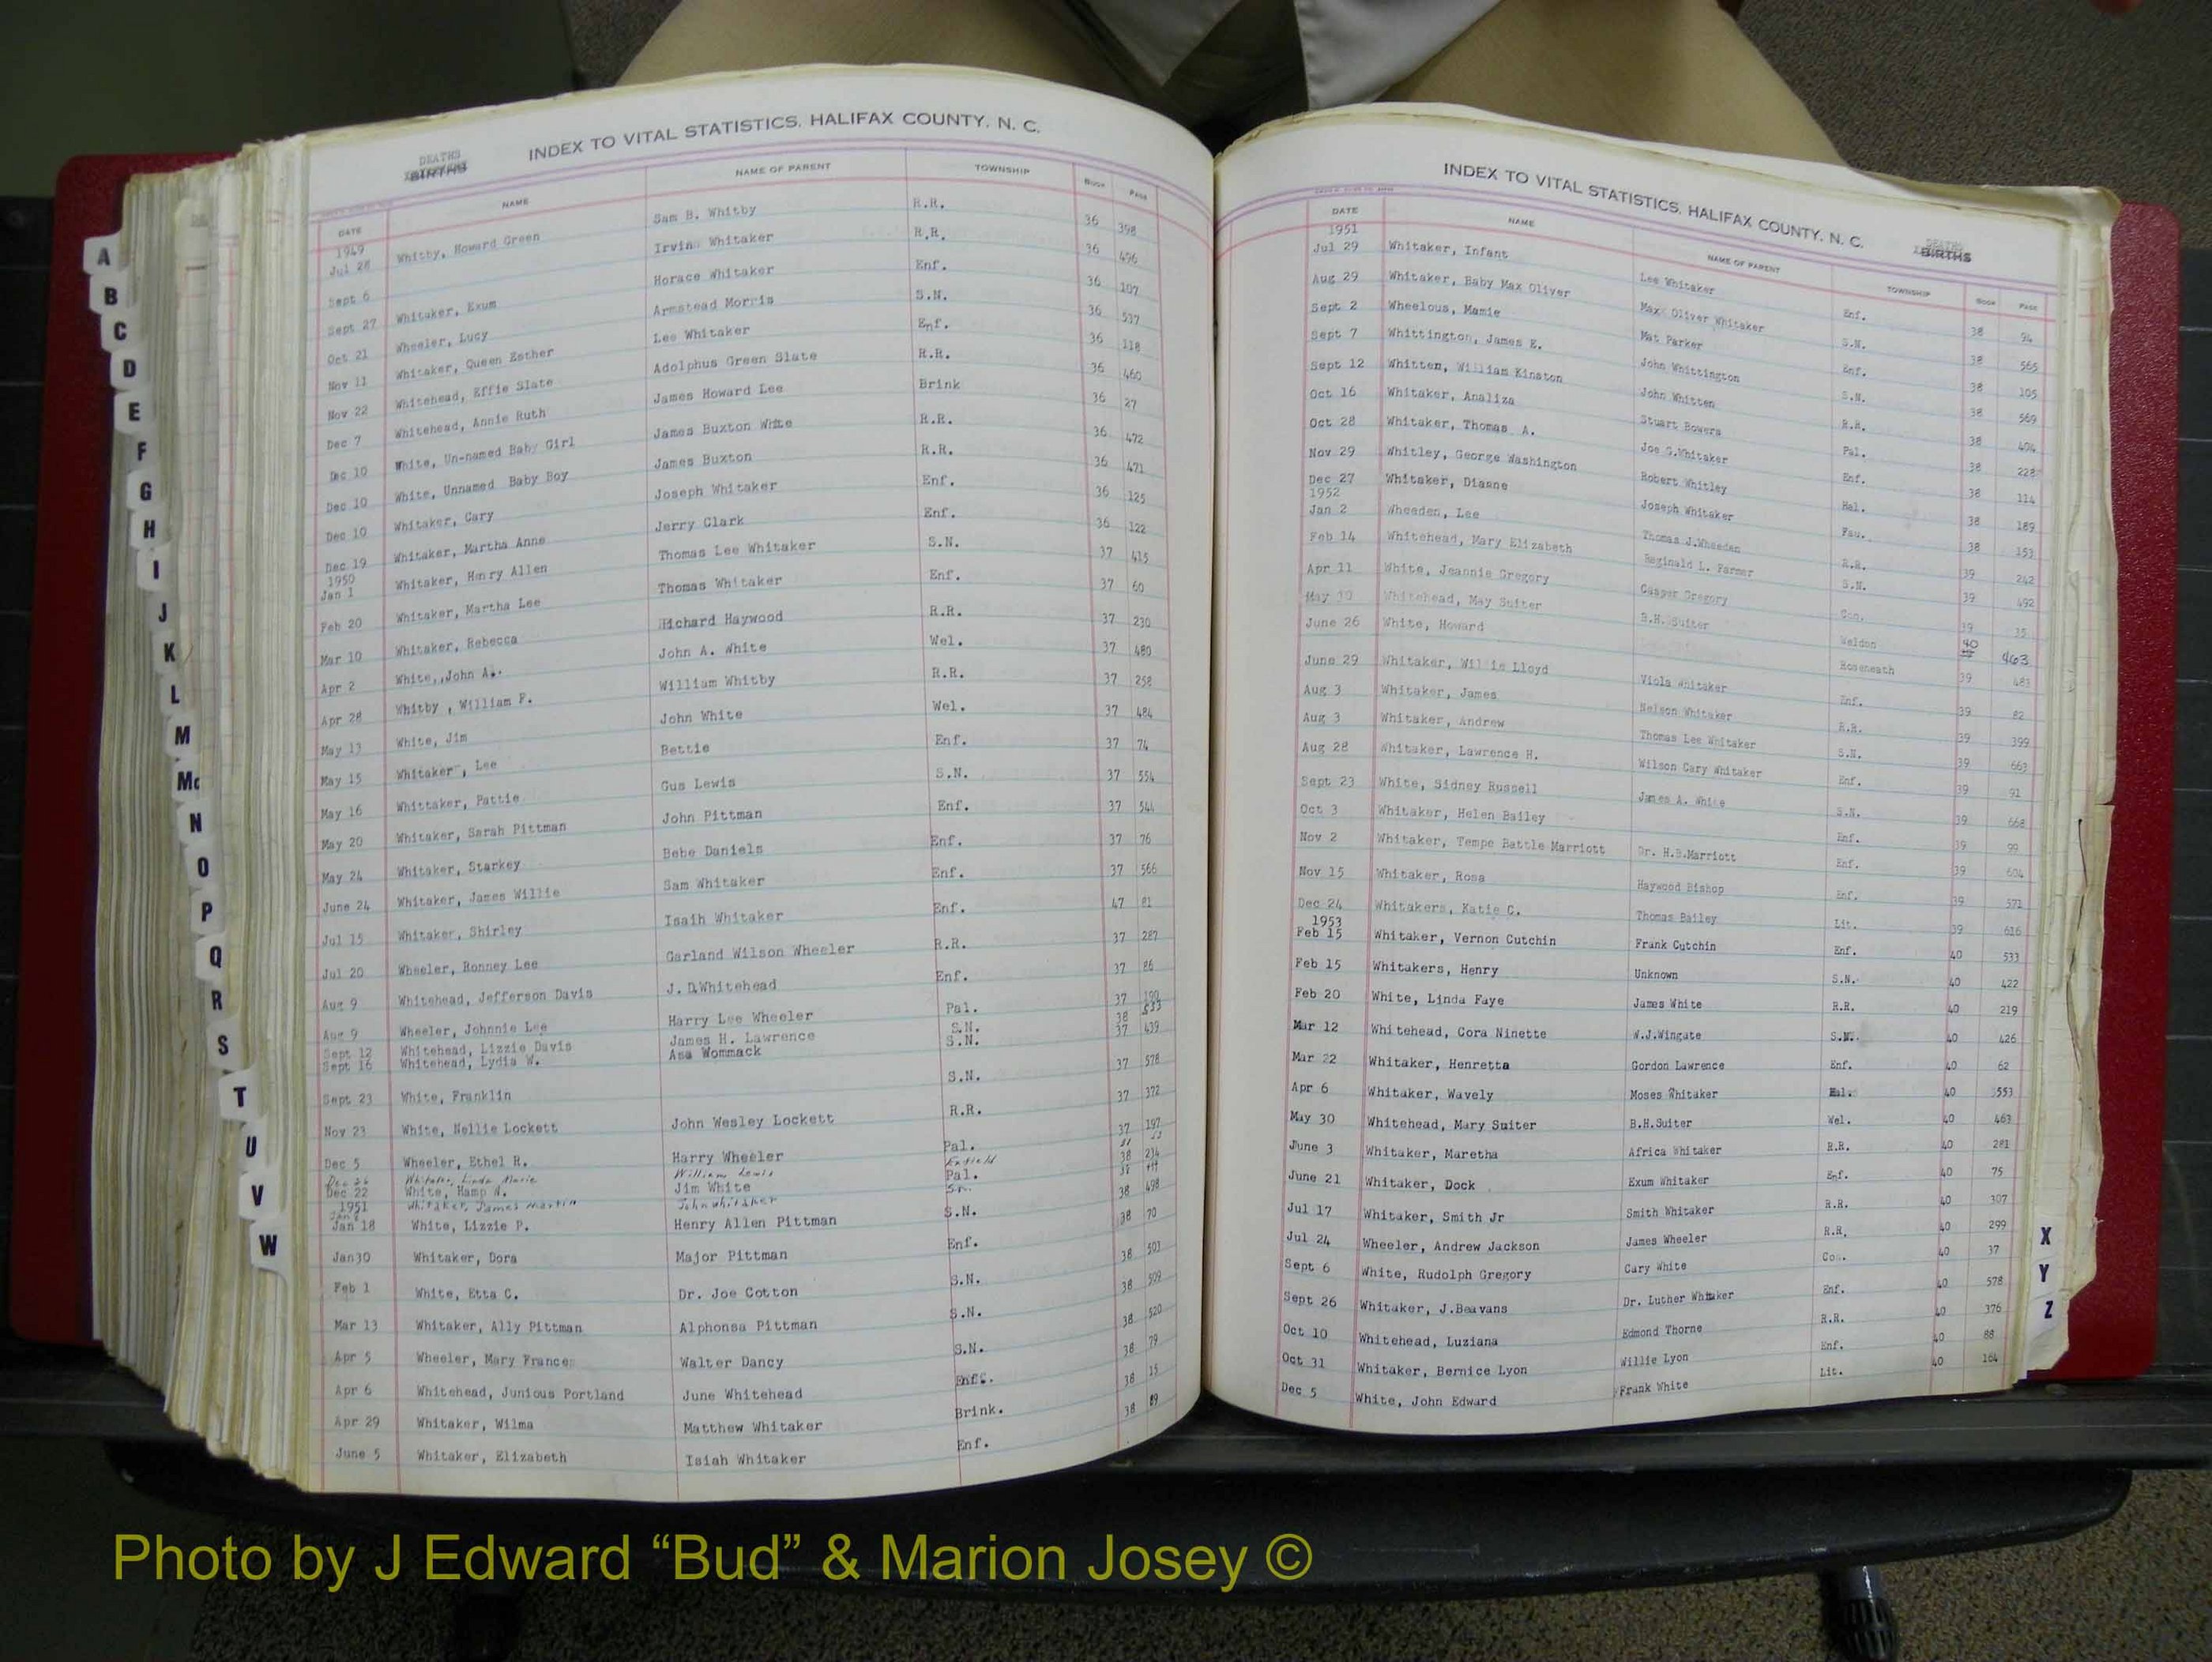 DEATHS
BIRTHS
INDEX TO VITAL STATISTICS, HALIFAX COUNTY, N. C.
DATE NAME NAME OF PARENT TOWNSHIP BOOK PAGE
1949
Jul 28 Whitby, Howard Green Sam B. Whitby R.R. 36 398
Sept 6 Irvin Whitaker R.R. 36 496
Sept 27 Whitaker, Exum Horace Whitaker Enf. 36 107
Oct 21 Wheeler, Lucy Armstead Morris S.N. 36 537
Nov 11 Whitaker, Queen Esther Lee Whitaker Enf. 36 118
Nov 22 Whitehead, Effie Slate Adolphus Green Slate R.R. 36 460
Dec 7 Whitehead, Annie Ruth James Howard Lee Brink 36 27
Dec 10 White, Un-named Baby Girl James Buxton White R.R. 36 472
Dec 10 White, Unnamed Baby Boy James Buxton R.R. 36 471
Dec 10 Whitaker, Cary Joseph Whitaker Enf. 36 125
Dec 19 Whitaker, Martha Anne Jerry Clark Enf. 36 122
1950
Jan 1 Whitaker, Henry Allen Thomas Lee Whitaker S.N. 37 415
Feb 20 Whitaker, Martha Lee Thomas Whitaker Enf. 37 60
Mar 10 Whitaker, Rebecca Richard Haywood R.R. 37 230
Apr 2 White, John A. John A. White Wel. 37 480
Apr 28 Whitby, William F. William Whitby R.R. 37 258
May 13 White, Jim John White Wel. 37 484
May 15 Whitaker, Lee Bettie Enf. 37 74
May 16 Whittaker, Pattie Gus Lewis S.N. 37 554
May 20 Whitaker, Sarah Pittman John Pittman Enf. 37 544
May 24 Whitaker, Starkey Bebe Daniels Enf. 37 76
June 24 Whitaker, James Willie Sam Whitaker Enf. 37 566
Jul 15 Whitaker, Shirley Isaih Whitaker Enf. 47 81
Jul 20 Wheeler, Ronney Lee Garland Wilson Wheeler R.R. 37 287
Aug 9 Whitehead, Jefferson Davis J.D.Whitehead Enf. 37 86
Aug 9 Wheeler, Johnnie Lee Harry Lee Wheeler Pal. 37 190
Sept 12 Whitehead, Lizzie Davis James H. Lawrence S.N. 38
Sept 16 Whitehead, Lydia W. Asa Wommack S.N. 37 439
Sept 23 White, Franklin S.N. 37 578
Nov 23 White, Nellie Lockett John Wesley Lockett R.R. 37 372
Dec 5 Wheeler, Ethel R. Harry Wheeler Pal. 37 197
Whitaker, Linda Marie William Lewis Enfield
Dec 22 White, Hamp W. Jim White Pal. 38 234
1951 Whitaker, James Martin John Whitaker
Jan 18 White, Lizzie P. Henry Allen Pittman S.N. 38 498
Jan30 Whitaker, Dora Major Pittman Enf. 38 70
Feb 1 White, Etta C. Dr. Joe Cotton S.N. 38 503
Mar 13 Whitaker, Ally Pittman Alphonsa Pittman S.N. 38 509
Apr 5 Wheeler, Mary Frances Walter Dancy S.N. 38 520
Apr 6 Whitehead, Junious Portland June Whitehead Enff. 38 79
Apr 29 Whitaker, Wilma Matthew Whitaker Brink. 38 15
June 5 Whitaker, Elizabeth Isiah Whitaker Enf. 38 89
A
B
C
D
E
F
G
H
I
J
K
L
M
Mc
N
O
P
Q
R
S
T
U
V
W
INDEX TO VITAL STATISTICS, HALIFAX COUNTY, N. C.
DEATHS
BIRTHS
DATE NAME NAME OF PARENT TOWNSHIP BOOK PAGE
1951
Jul 29 Whitaker, Infant Lee Whitaker Enf. 38 94
Aug 29 Whitaker, Baby Max Oliver Max Oliver Whitaker S.N. 38 565
Sept 2 Wheelous, Mamie Mat Parker Enf. 38 105
Sept 7 Whittington, James E. John Whittington S.N. 38 569
Sept 12 Whitten, William Kinston John Whitten R.R. 38 404
Oct 16 Whitaker, Analiza Stuart Bowers Pal. 38 228
Oct 28 Whitaker, Thomas A. Joe G.Whitaker Enf. 38 114
Nov 29 Whitley, George Washington Robert Whitley Hal. 38 189
Dec 27 Whitaker, Dianne Joseph Whitaker Fau. 38 153
1952
Jan 2 Wheeden, Lee Thomas J.Wheeden R.R. 39 242
Feb 14 Whitehead, Mary Elizabeth Reginald L. Farmer S.N. 39 492
Apr 11 White, Jeannie Gregory Casper Gregory Con. 39 35
May 30 Whitehead, May Suiter B.H. Suiter Weldon 40 463
June 26 White, Howard Roseneath 39 483
June 29 Whitaker, Willie Lloyd Viola Whitaker Enf. 39 82
Aug 3 Whitaker, James Nelson Whitaker R.R. 39 399
Aug 3 Whitaker, Andrew Thomas Lee Whitaker S.N. 39 663
Aug 28 Whitaker, Lawrence H. Wilson Cary Whitaker Enf. 39 91
Sept 23 White, Sidney Russell James A. White S.N. 39 668
Oct 3 Whitaker, Helen Bailey Enf. 39 99
Nov 2 Whitaker, Tempe Battle Marriott Dr. H.B.Marriott Enf. 39 604
Nov 15 Whitaker, Rosa Haywood Bishop Enf. 39 571
Dec 24 Whitakers, Katie C. Thomas Bailey Lit. 39 616
1953
Feb 15 Whitaker, Vernon Cutchin Frank Cutchin Enf. 40 533
Feb 15 Whitakers, Henry Unknown S.N. 40 422
Feb 20 White, Linda Faye James White R.R. 40 219
Mar 12 Whitehead, Cora Ninette W.J.Wingate S.N. 40 426
Mar 22 Whitaker, Henretta Gordon Lawrence Enf. 40 62
Apr 6 Whitaker, Wavely Moses Whitaker Hal. 40 553
May 30 Whitehead, Mary Suiter B.H.Suiter Wel. 40 463
June 3 Whitaker, Maretha Africa Whitaker R.R. 40 281
June 21 Whitaker, Dock Exum Whitaker Enf. 40 75
Jul 17 Whitaker, Smith Jr Smith Whitaker R.R. 40 307
Jul 24 Wheeler, Andrew Jackson James Wheeler R.R. 40 299
Sept 6 White, Rudolph Gregory Cary White Con. 40 37
Sept 26 Whitaker, J.Beavans Dr. Luther Whitaker Enf. 40 578
Oct 10 Whitehead, Luziana Edmond Thorne R.R. 40 376
Oct 31 Whitaker, Bernice Lyon Willie Lyon Enf. 40 88
Dec 5 White, John Edward Frank White Lit. 40 164
X
Y
Z
Photo by J Edward “Bud” & Marion Josey ©